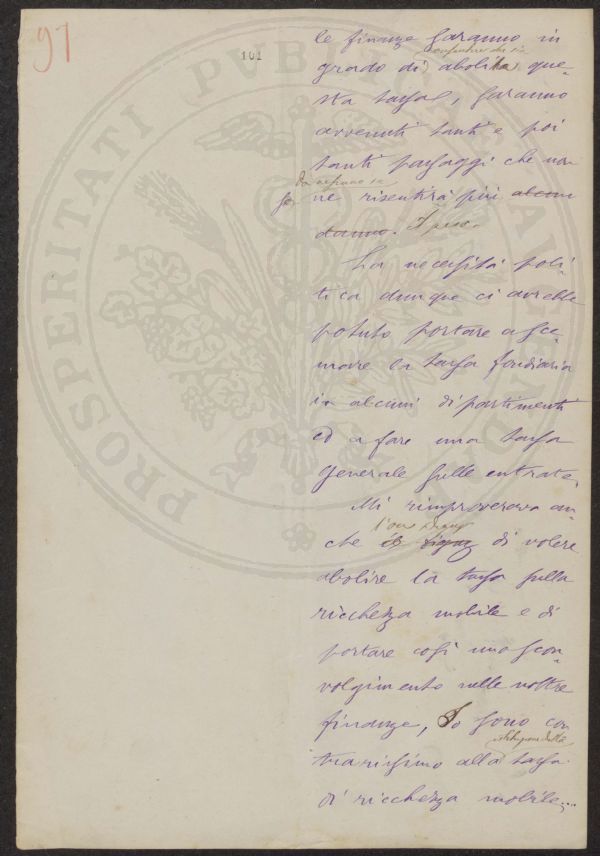 97
101
PROSPERITATI PVB
le finanze saranno in
grado di abolita que-
sta tassa, saranno
avvenuti tanti e poi
tanti passaggi che non
ne risentirà più alcun
danno.
La necessità poli-
tica dunque ci avrebbe
potuto portare a sce-
mare la tassa fondiaria
in alcuni dipartimenti
ed a fare una tassa
generale sulle entrate.
Mi rimproverava an-
che di volere
abolire la tassa sulla
ricchezza mobile e di
portare così uno scon-
volgimento nelle nostre
finanze, Io sono con
trarissimo alla tassa
di ricchezza mobile,...